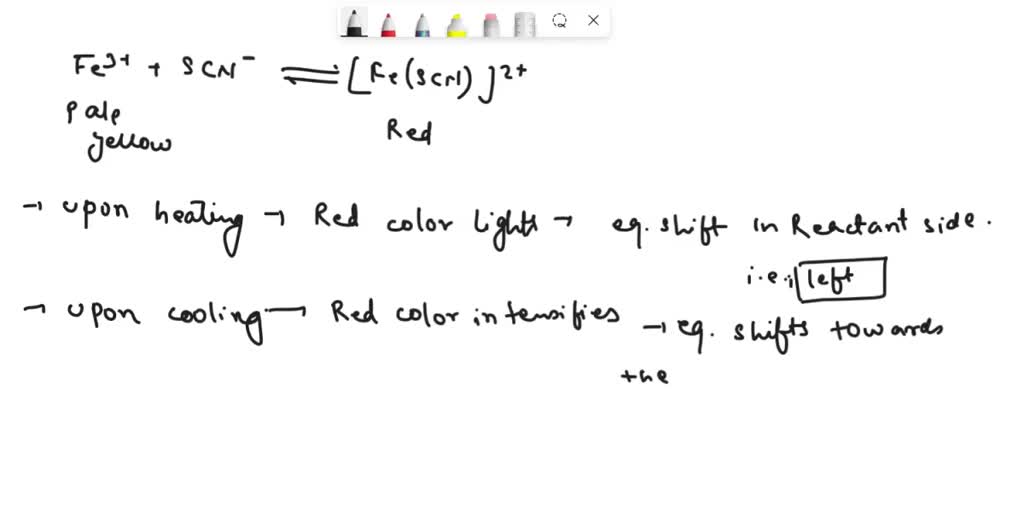 Fe³⁺ + SCN⁻ ⇌ [Fe(SCN)]²⁺
Pale yellow
Red
→ upon heating → Red color lights → eq. shift in Reactant side.
i.e., left
→ upon cooling → Red color intensifies → eq. shifts towards
the